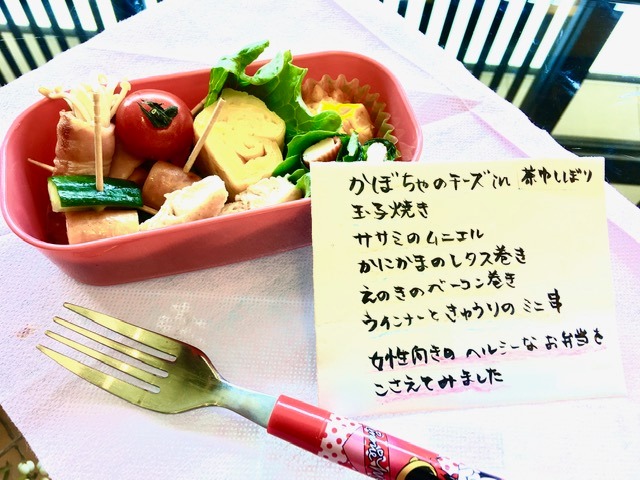 かぼちゃのチーズin 茶巾しぼり
玉子焼き
ササミのムニエル
かにかまのレタス巻き
えのきのベーコン巻き
ウインナーときゅうりのミニ串
女性向きのヘルシーなお弁当を
こさえてみました